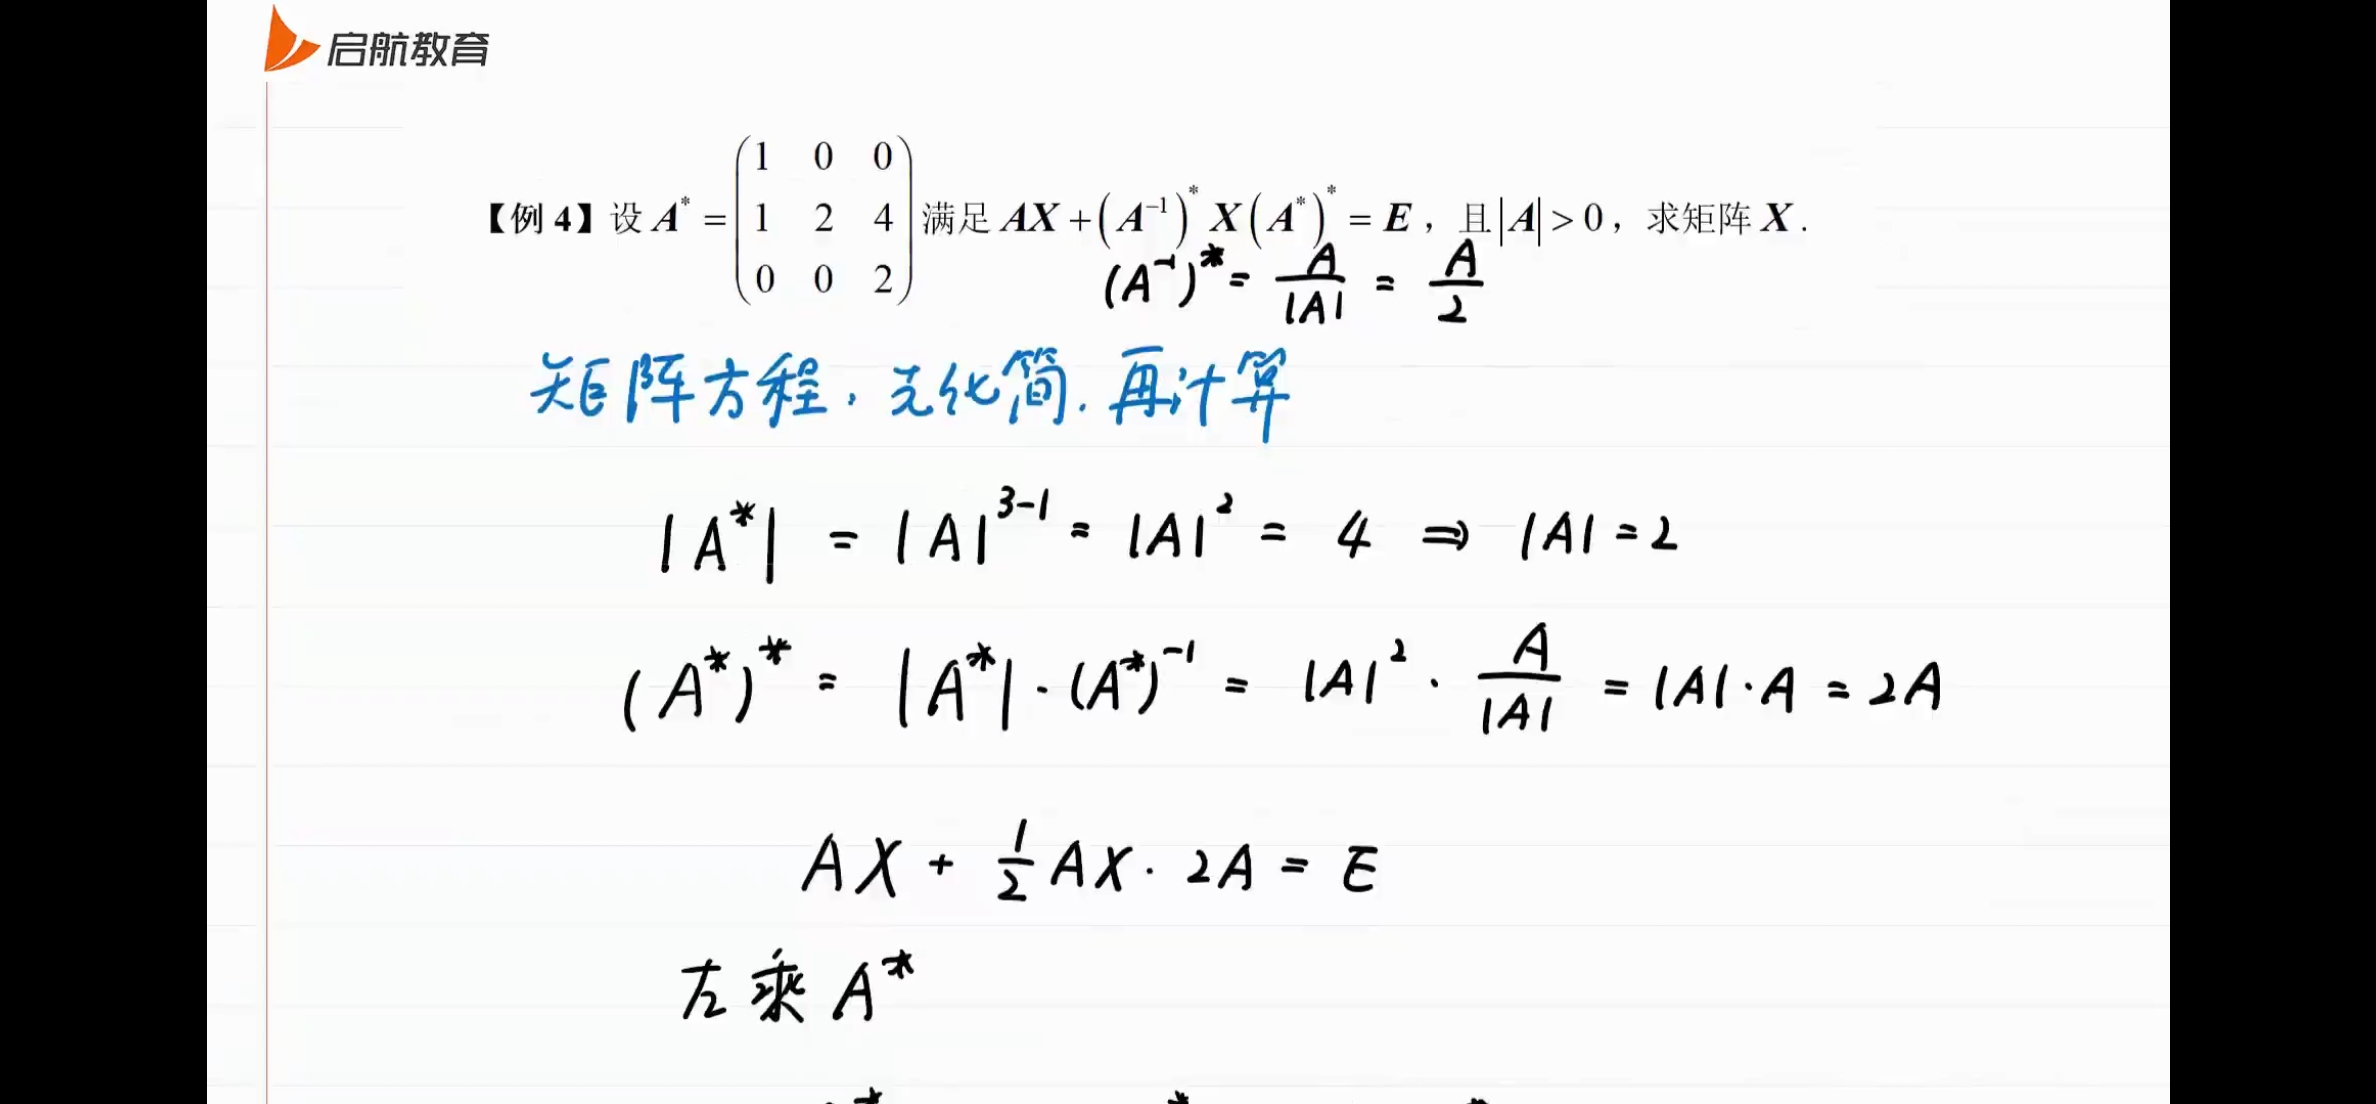 启航教育
【例 4】设 A* = (1 0 0
1 2 4
0 0 2) 满足 AX + (A⁻¹)* X (A*)* = E，且 |A| > 0，求矩阵 X.
(A⁻¹)* = A/|A| = A/2
矩阵方程，先化简.再计算
|A*| = |A|³⁻¹ = |A|² = 4 ⇒ |A| = 2
(A*)* = |A*| · (A*)⁻¹ = |A|² · A/|A| = |A| · A = 2A
AX + 1/2 AX · 2A = E
左乘 A*